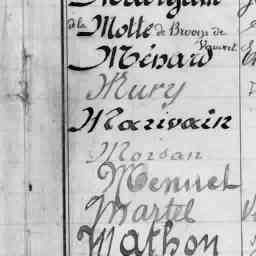 de la Motte de Broons de Vauvert
Ménard
Mury
Marivain
Morvan
Menuet
Martel
Mathon